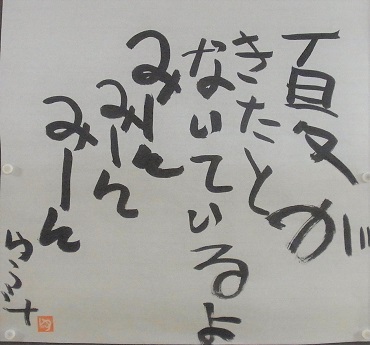 夏が
きたと
ないているよ
みーん
みーん
みーん